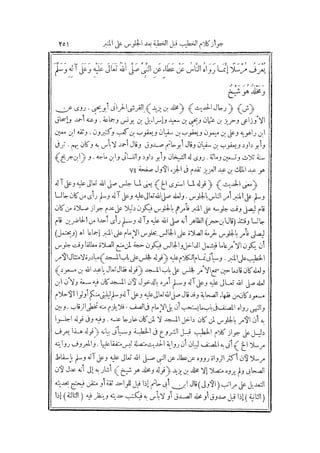 جواز كلام الخطيب قبل الخطبة بعد الجلوس على المنبر ٢٥١
يُعْرَفُ مُرْسَلًا إِنَّمَا رَوَاهُ النَّاسُ عَنْ عَطَاءٍ عَنِ النَّبِيِّ صَلَّى اللهُ تَعَالَى عَلَيْهِ وَعَلَى آلِهِ وَسَلَّمَ
وَمَخْلَدٌ هُوَ شَيْخٌ
﴿ش﴾ ﴿رجال الحديث﴾ ﴿مخلد بن يزيد﴾ القرشى الحرانى أبو يحيى. روى عن
الأوزاعى وحريز بن عثمان ويحيى بن سعيد وإسرائيل بن يونس وجماعة. وعنه أحمد وإسحاق
ابن راهويه وعلى بن ميمون ويعقوب بن سفيان ويعقوب بن كعب وكثيرون. وثقه ابن معين
وأبو داود ويعقوب بن سفيان وقال أبو حاتم صدوق وقال أحمد لا بأس به وكان يهم. توفى
سنة ثلاث وتسعين ومائة. روى له الشيخان وأبو داود والنسائى وابن ماجه. و﴿ابن جريج﴾
هو عبد الملك بن عبد العزيز تقدم فى الجزء الأول صفحة ٧٤
﴿معنى الحديث﴾ ﴿قوله لما استوى الخ﴾ يعنى لما جلس صلى الله تعالى عليه وعلى آله
وسلم على المنبر أمر الناس بالجلوس. ولعله صلى الله تعالى عليه وعلى آله وسلم رأى من كان جالسا
قام ليصلى وقت جلوسه على المنبر فأمرهم بالجلوس فيكون دليلا على عدم جواز صلاة من كان
جالسا وقتئذ ﴿قال ابن حجر﴾ الظاهر أنه صلى الله عليه وآله وسلم رأى أحدا من الحاضرين قام
ليصلى فأمر بالجلوس لحرمة الصلاة على الجالس بجلوس الإمام على المنبر إجماعا اهـ ﴿ويحتمل﴾
أن يكون الأمر عاما فيشمل الداخل والجالس فيكون حجة لمن منع الصلاة مطلقا وقت جلوس
الخطيب على المنبر. وسيأتى تمام الكلام عليه ﴿قوله فجلس على باب المسجد﴾ مبادرة لامتثال الأمر
ولعله كان قادما حين سمع الأمر فجلس على باب المسجد ﴿قوله فقال تعال يا عبد الله بن مسعود﴾
لعله صلى الله تعالى عليه وعلى آله وسلم أمره بالدخول لأن المسجد كان فيه سعة ولأن ابن
مسعود كان من فقهاء الصحابة وقد قال صلى الله تعالى عليه وعلى آله وسلم ليلينى منكم أولو الأحلام
والنهى رواه المصنف فى باب ما يستحب أن يلى الإمام فى الصف. فلا يلزم منه تخطى الرقاب. وبين
به أن الأمر بالجلوس لمن كان داخل المسجد لا لمن كان خارجا عنه. وفيه وفى قوله اجلسوا
دليل على جواز كلام الخطيب قبل الشروع فى الخطبة وسيأتى بيانه ﴿قوله هذا يعرف
مرسلا الخ﴾ أتى به المصنف لبيان أن رواية الحديث متصلة ليس متفقا عليها. والمعروف روايته
مرسلا لأن أكثر الرواة رووه عن عطاء عن النبى صلى الله تعالى عليه وعلى آله وسلم بإسقاط
الصحابى ولم يروه متصلا إلا مخلد بن يزيد ﴿قوله ومخلد هو شيخ﴾ أشار به إلى أنه عدل لأن
التعديل على مراتب ﴿الأولى﴾ قال ابن أبى حاتم إذا قيل للواحد ثقة أو متقن فيحتج بحديثه
﴿الثانية﴾ إذا قيل صدوق أو محله الصدق أو لا بأس به فيكتب حديثه وينظر فيه ﴿الثالثة﴾ إذا